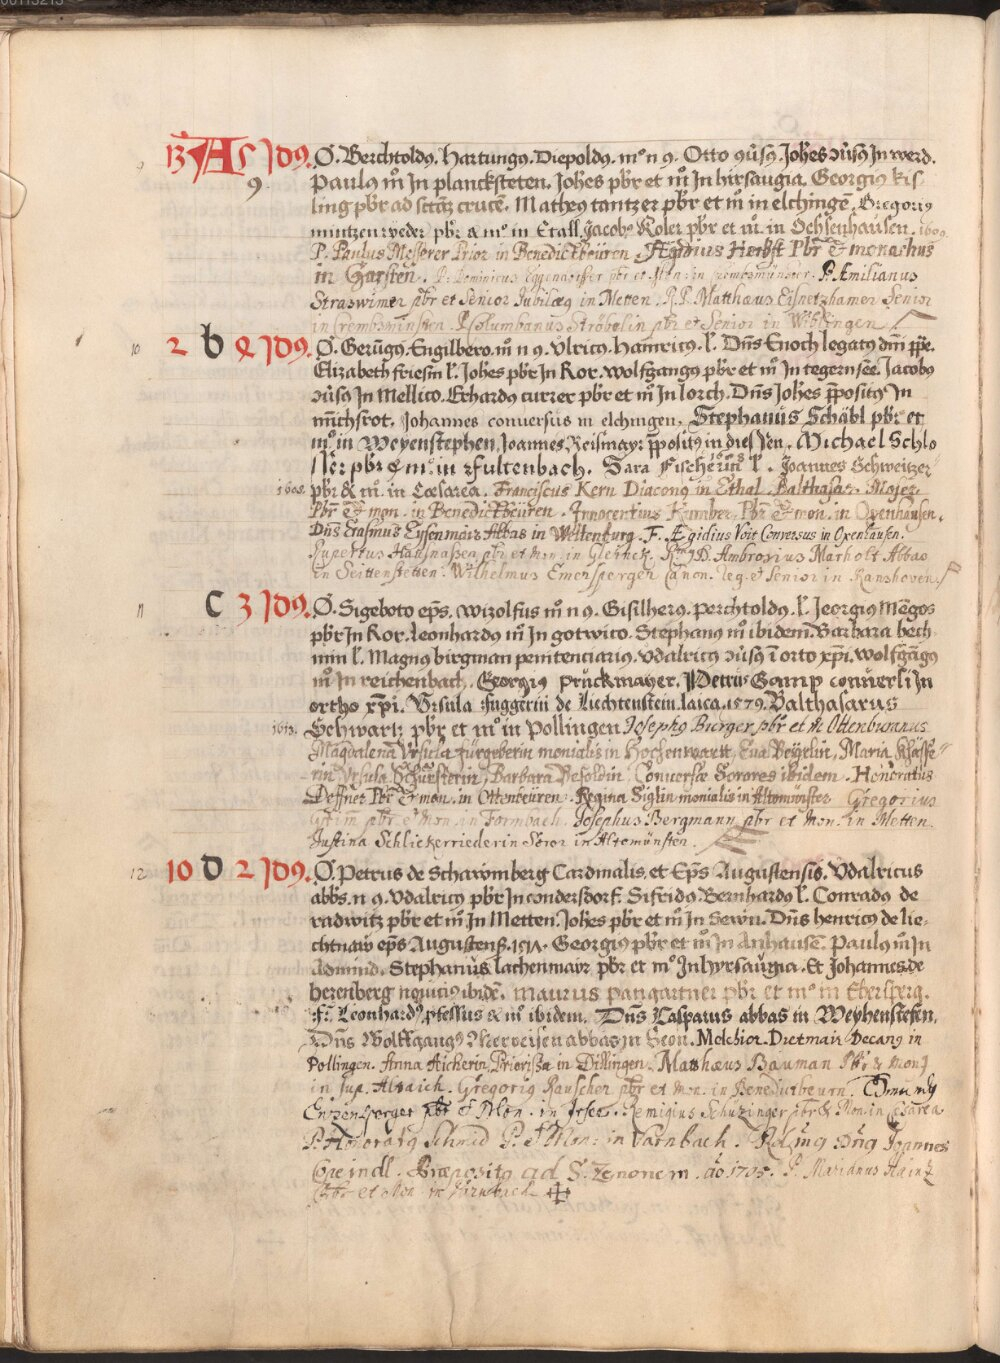 13 A 5 Id9. O. Berchtold9. Hartung9. Diepold9. m° n 9. Otto 9ūs9. Joh̄es 9ūs9 In werd.
9. Paul9 m̄ In plancksteten. Joh̄es pb̄r et m̄ In hirsaugia. Georgi9 kis
ling pb̄r ad sctāʒ crucē. Mathe9 tantzer pb̄r et m̄ in elchingē. Gregori9
muntzenrveder pb̄r & m° in Etall. Jacob9 Koler pb̄r et m̄. in Ochsenhausen. 1600.
P. Paulus Messerer Prior in Benedicktbeüren. Ægidius Herbst Pb̄r & monachus
in Garsten. P. Dominicus Eggendorffer pb̄r et Mon: in Crembsmünster. P. Æmilianus
Straswimer pb̄r et Senior Jubilæ9 in Metten. R.P. Matthæus Eisnetzhamer Senior
in Crembsminsten. P. Columbanus Ströbelin pb̄r et Senior in Wiblingen
10 2 b 4 Id9. O. Gerūg9. Engilbero. m̄ n 9. Ulric9. Hainric9. l̄. Dn̄s Enoch legat9 dn̄i pp̄e.
Elizabeth friesin l̄. Joh̄es pb̄r In Ror. wolfgang9 pb̄r et m̄ In tegernsēe. Jacob9
9ūs9 In Mellico. Erhard9 curzer pb̄r et m̄ In lorch. Dn̄s Joh̄es p̄posit9 In
mn̄chsrot. Johannes conversus in elchingen. Stephanus Schäbl pb̄r et
m° in Weyenstephen. Joannes Reismayr p̄posit9 in diessen. Michael Schlo
sser pb̄r & m: in Fultenbach. Sara Fischerin l̄. Joannes Schweitzer
1608. pb̄r & m̄. in Cæsarea. Franciscus Kern Diacon9 in Ethal. Balthasar Moser
Pb̄r & mon. in Benedicktbeüren. Innocentius Kumber Pb̄r & mon. in Oxenhausen.
Dn̄s Erasmus Eysenmair Abbas in Weltenburg. F. Ægidius Voit Conversus in Oxenhausen.
Rupertus Hausnassen pb̄r et mon. in Gleinck. Ambrosius Marholt Abbas
in Seittenstetten. Wilhelmus Emenspergen Canon. reg. et Senior in Ranshoven.
11 C 3 Id9. O. Sigeboto ep̄s. Wizolfus m̄ n 9. Gisilher9. perchtold9. l̄. Jeorgi9 Mēgos
pb̄r In Ror. Leonhard9 m̄ In gotwico. Stephan9 m̄ ibidem. Barbara bech
min l̄. Magn9 birgman penitenciari9. Vdalric9 9ūs9 ī orto xp̄i. wolfgāg9
m̄ In reichenbach. Georgi9 pruckmayer. Petrus Gamp conversi In
ortho xp̄i. Ursula Fuggerin de Liechtenstein. laica. 1579. Balthasarus
1613. Schwartz pb̄r et m° in Pollingen Joseph9 Burger pb̄r et m̄ Ottenburanus
Magdalena Ursula Fürgerberin monialis in Hochenwartt, Eva Beÿrlin, Maria Schässe
rin, Ursula Schuesterin, Barbara Besoldin, Conversæ Sorores ibidem. Honoratus
Deffner Pb̄r & mon. in Ottenbeüren. Regina Siglin monialis in Altomünster Gregorius
Grim pb̄r et Mon. in Formbach. Josephus Bergmann pb̄r et Mon. in Metten.
Justina Schlickerriederin Soror in Altomünsten.
12 10 D 2 Id9. O. Petrus de Schawmberg Cardinalis. et Ep̄s Augustensis. Vdalricus
abb̄s. n 9. Vdalric9 pb̄r In condersdorf. Sifrid9. Bernhard9 l̄. Conrad9 de
radwitz pb̄r et m̄ In Metten. Joh̄es pb̄r et m̄ In Sewn. Dn̄s henric9 de lie-
chtnaw ep̄s Augustens̄. 1517. Georgi9 pb̄r et m̄ In Anhausē. Paul9 m̄ In
Admund. Stephanus lachenmair pb̄r et m° In hyrsaugia. Et Johannes de
herenberg noviti9 ibidē. maurus pangartner pb̄r et m° in Ebersperg.
Fr̄. Leonhard9 p̄fessus & m° ibidem. Dn̄s Casparus abbas in Weyhenstefen.
Dn̄s Wolffgang9 abbas in Seon. Melchior Dietmair Decan9 in
Pollingen. Anna Aicherin Priorissa in Dillingen. Matthæus Bauman Pb̄r & mon9
in sup. Altaich. Gregori9 Rauscher pb̄r et mon. in Benedictbeurn. Edmund9
Enzensperger pb̄r et Mon. in Irsee. Remigius Schutzinger pb̄r & Mon. in Cæsarea
P. Honorat9 Schmid P. et Mon: in Varnbach. Rd̄im9 Dn̄9 Joannes
Greindl. Præposit9 ad S. Zenonem. aō 1705. P. Marianus Hainz
Pb̄r et Mon. in Vornbach